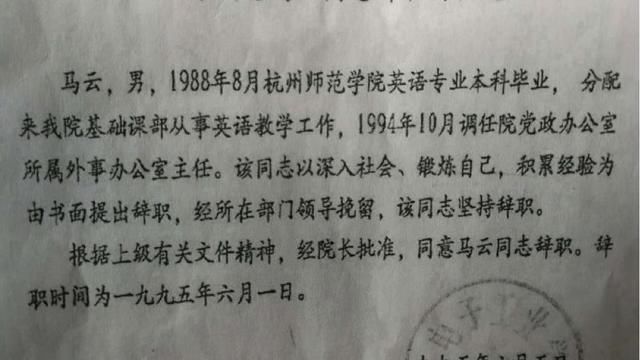 马云，男，1988年8月杭州师范学院英语专业本科毕业，分配
来我院基础课部从事英语教学工作，1994年10月调任院党政办公室
所属外事办公室主任。该同志以深入社会、锻炼自己，积累经验为
由书面提出辞职，经所在部门领导挽留，该同志坚持辞职。
根据上级有关文件精神，经院长批准，同意马云同志辞职。辞
职时间为一九九五年六月一日。
电子工业